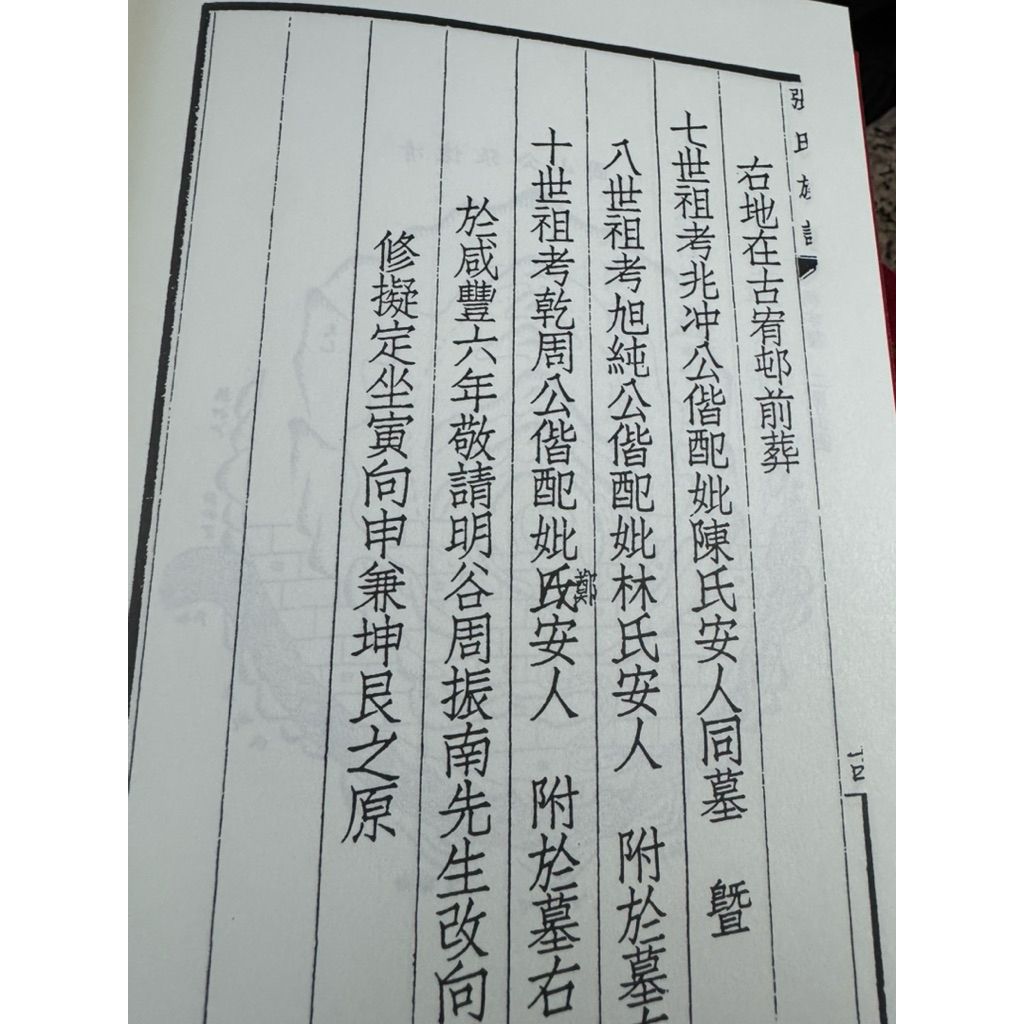 張氏族譜
右地在古宥邨前葬
七世祖考兆冲公偕配妣陳氏安人同墓 暨
八世祖考旭純公偕配妣林氏安人 附於墓
十世祖考乾周公偕配妣鄭氏安人 附於墓右
於咸豐六年敬請明谷周振南先生改向
修擬定坐寅向申兼坤艮之原